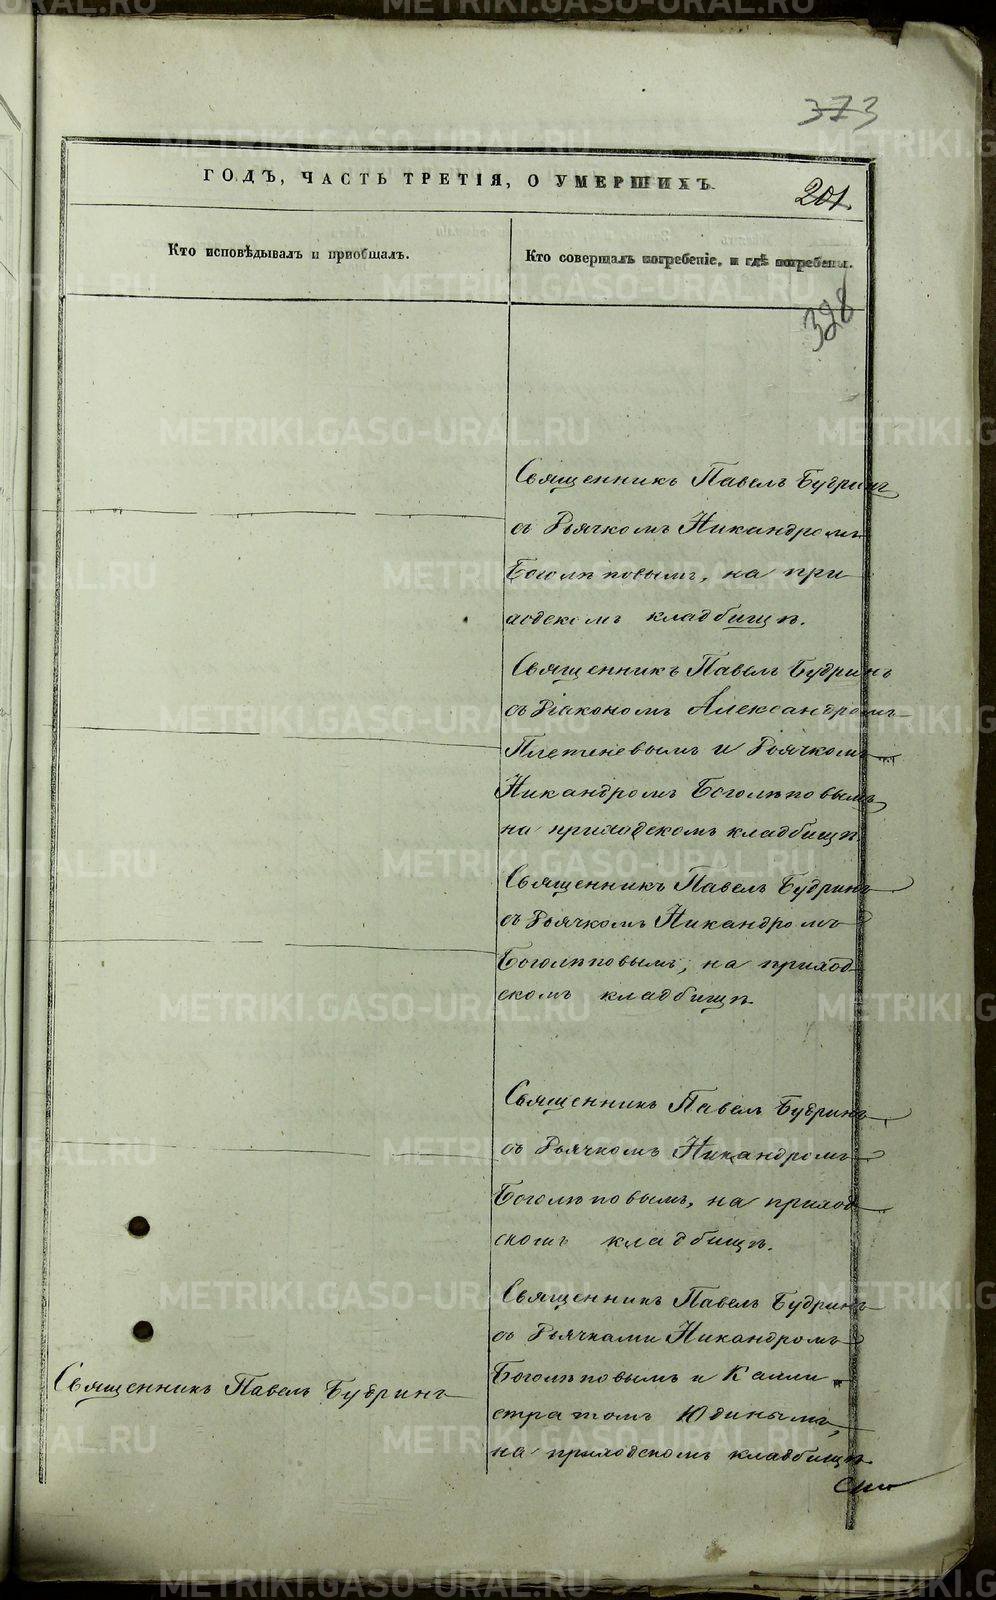 373
ГОДЪ, ЧАСТЬ ТРЕТІЯ, О УМЕРШИХЪ.
201.
Кто исповѣдывалъ и пріобщалъ.
Кто совершалъ погребеніе, и гдѣ погребены.
328
Священникъ Павелъ Будринъ
съ Дьячкомъ Никандромъ
Боголѣповымъ, на при
ходскомъ кладбищѣ.
Священникъ Павелъ Будринъ
съ Діакономъ Александромъ
Плетеневымъ и Дьячкомъ
Никандромъ Боголѣповымъ
на приходскомъ кладбищѣ.
Священникъ Павелъ Будринъ
съ Дьячкомъ Никандромъ
Боголѣповымъ, на приход
скомъ кладбищѣ
Священникъ Павелъ Будринъ
съ Дьячкомъ Никандромъ
Боголѣповымъ, на приход
скомъ кладбищѣ.
Священникъ Павелъ Будринъ
съ Дьячками Никандромъ
Боголѣповымъ и Калли
Священникъ Павелъ Будринъ
стратомъ Юдинымъ,
на приходскомъ кладбищѣ
METRIKI.GASO-URAL.RU